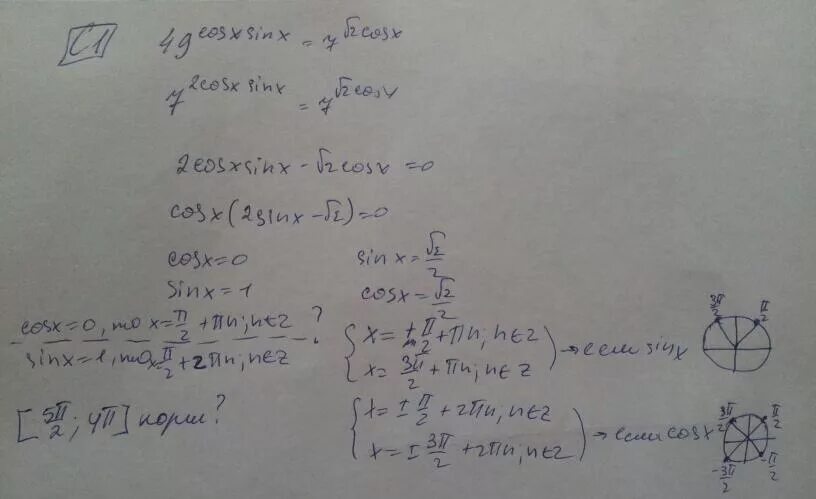 C1 49^cosx sinx = 7^√2cosx
7^2cosx sinx = 7^√2cosx
2cosx sinx - √2cosx = 0
cosx(2sinx - √2) = 0
cosx = 0 sinx = √2/2
sinx = 1 cosx = √2/2
cosx = 0, то x = π/2 + πn; n∈Z ?
sinx = 1, то x π/2 + 2πn, n∈Z
{ x = ± π/2 + πn; n∈Z
x = 3π/2 + πn; n∈Z → если sinx
3π/2 π/2
[5π/2; 4π] корни?
{ x = ± π/2 + 2πn, n∈Z
x = ± 3π/2 + 2πn; n∈Z → если cosx
3π/2 π/2
-3π/2 -π/2